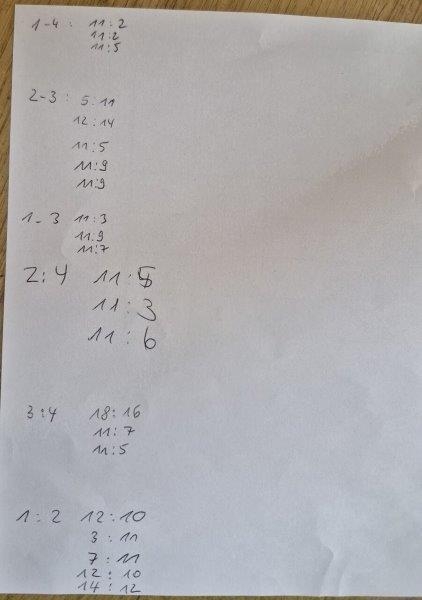 1-4 : 11:2
11:2
11:5
2-3 : 5:11
12:14
11:5
11:9
11:9
1-3 11:3
11:9
11:7
2:4 11:5
11:3
11:6
3:4 18:16
11:7
11:5
1:2 12:10
3:11
7:11
12:10
14:12